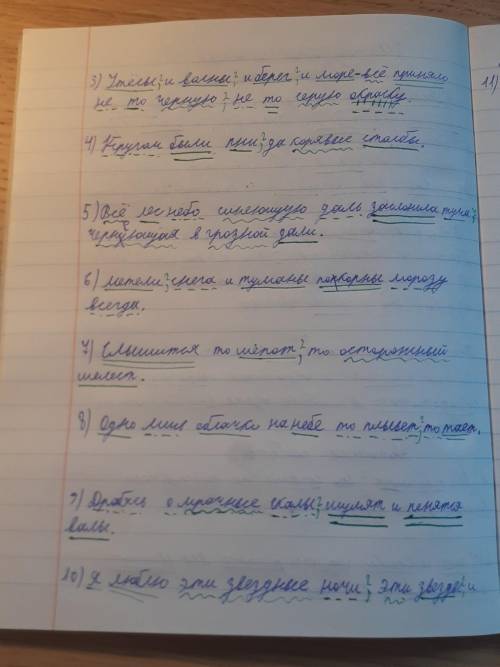 3) Утёсы, и волны, и берег, и море-всё приняло
не то черную, не то серую окраску.
4) Кругом были пни, да корявые столбы.
5) Всё лес небо синеющую даль заслонила туча,
чернующая в грозной дали.
6) метели, снега и туманы покорны морозу
всегда.
7) Слышится то шёпот, то осторожный
шелест.
8) Одно лиш облачко на небе то плывет, то тает.
9) Дробясь о мрачные скалы, шумят и пенятся
валы.
10) Я люблю эти звездные ночи, эти звезды, и
11)